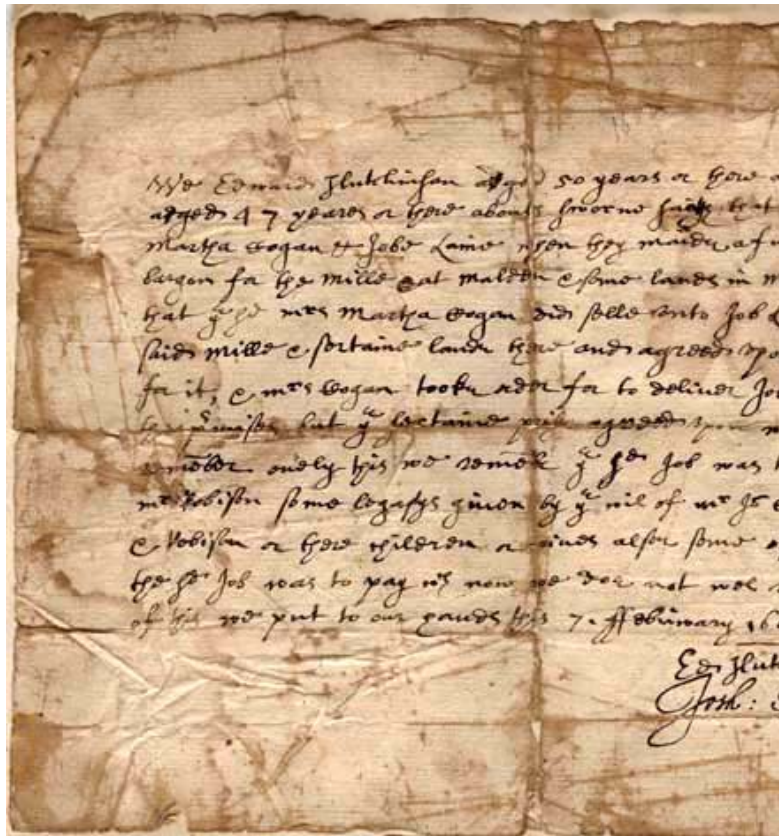 We Edward Hutchinson adged 50 years or there a
adged 47 yeares or there abouts sworne saieth that
Martha Cogan & Jobe Laine when they maide a f
bargon for the mille at malden & some lands in M
that ye sd mrs Martha Cogan did selle unto Job L
said mille & sertaine lands there and agreed upo
for it, & mrs Cogan tooke order for to deliver Jo
but ye certaine prise agreed upon
remember onely this we remember yt sd Job was t
mr Robison some legasys given by ye wil of mr
& Robison or there children or some
the sd Job was to pay now we doe not wel
of this we put to our hands this 7. ffebruwary 16
Ed Hut
Josh: